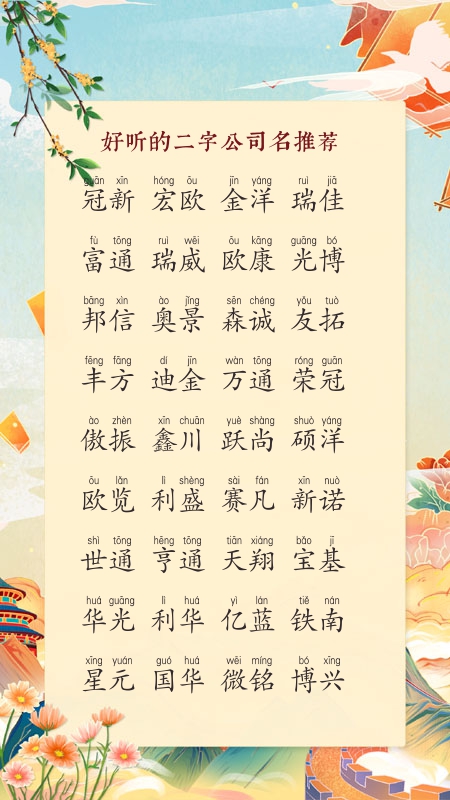 好听的二字公司名推荐
guān xīn hóng ōu jīn yáng ruì jiā
冠新 宏欧 金洋 瑞佳
fù tōng ruì wēi ōu kāng guāng bó
富通 瑞威 欧康 光博
bāng xìn ào jǐng sēn chéng yǒu tuò
邦信 奥景 森诚 友拓
fēng fāng dí jīn wàn tōng róng guān
丰方 迪金 万通 荣冠
ào zhèn xīn chuān yuè shàng shuò yáng
傲振 鑫川 跃尚 硕洋
ōu lǎn lì shèng sài fán xīn nuò
欧览 利盛 赛凡 新诺
shì tōng hēng tōng tiān xiáng bǎo jī
世通 亨通 天翔 宝基
huá guāng lì huá yì lán tiě nán
华光 利华 亿蓝 铁南
xīng yuán guó huá wēi míng bó xīng
星元 国华 微铭 博兴